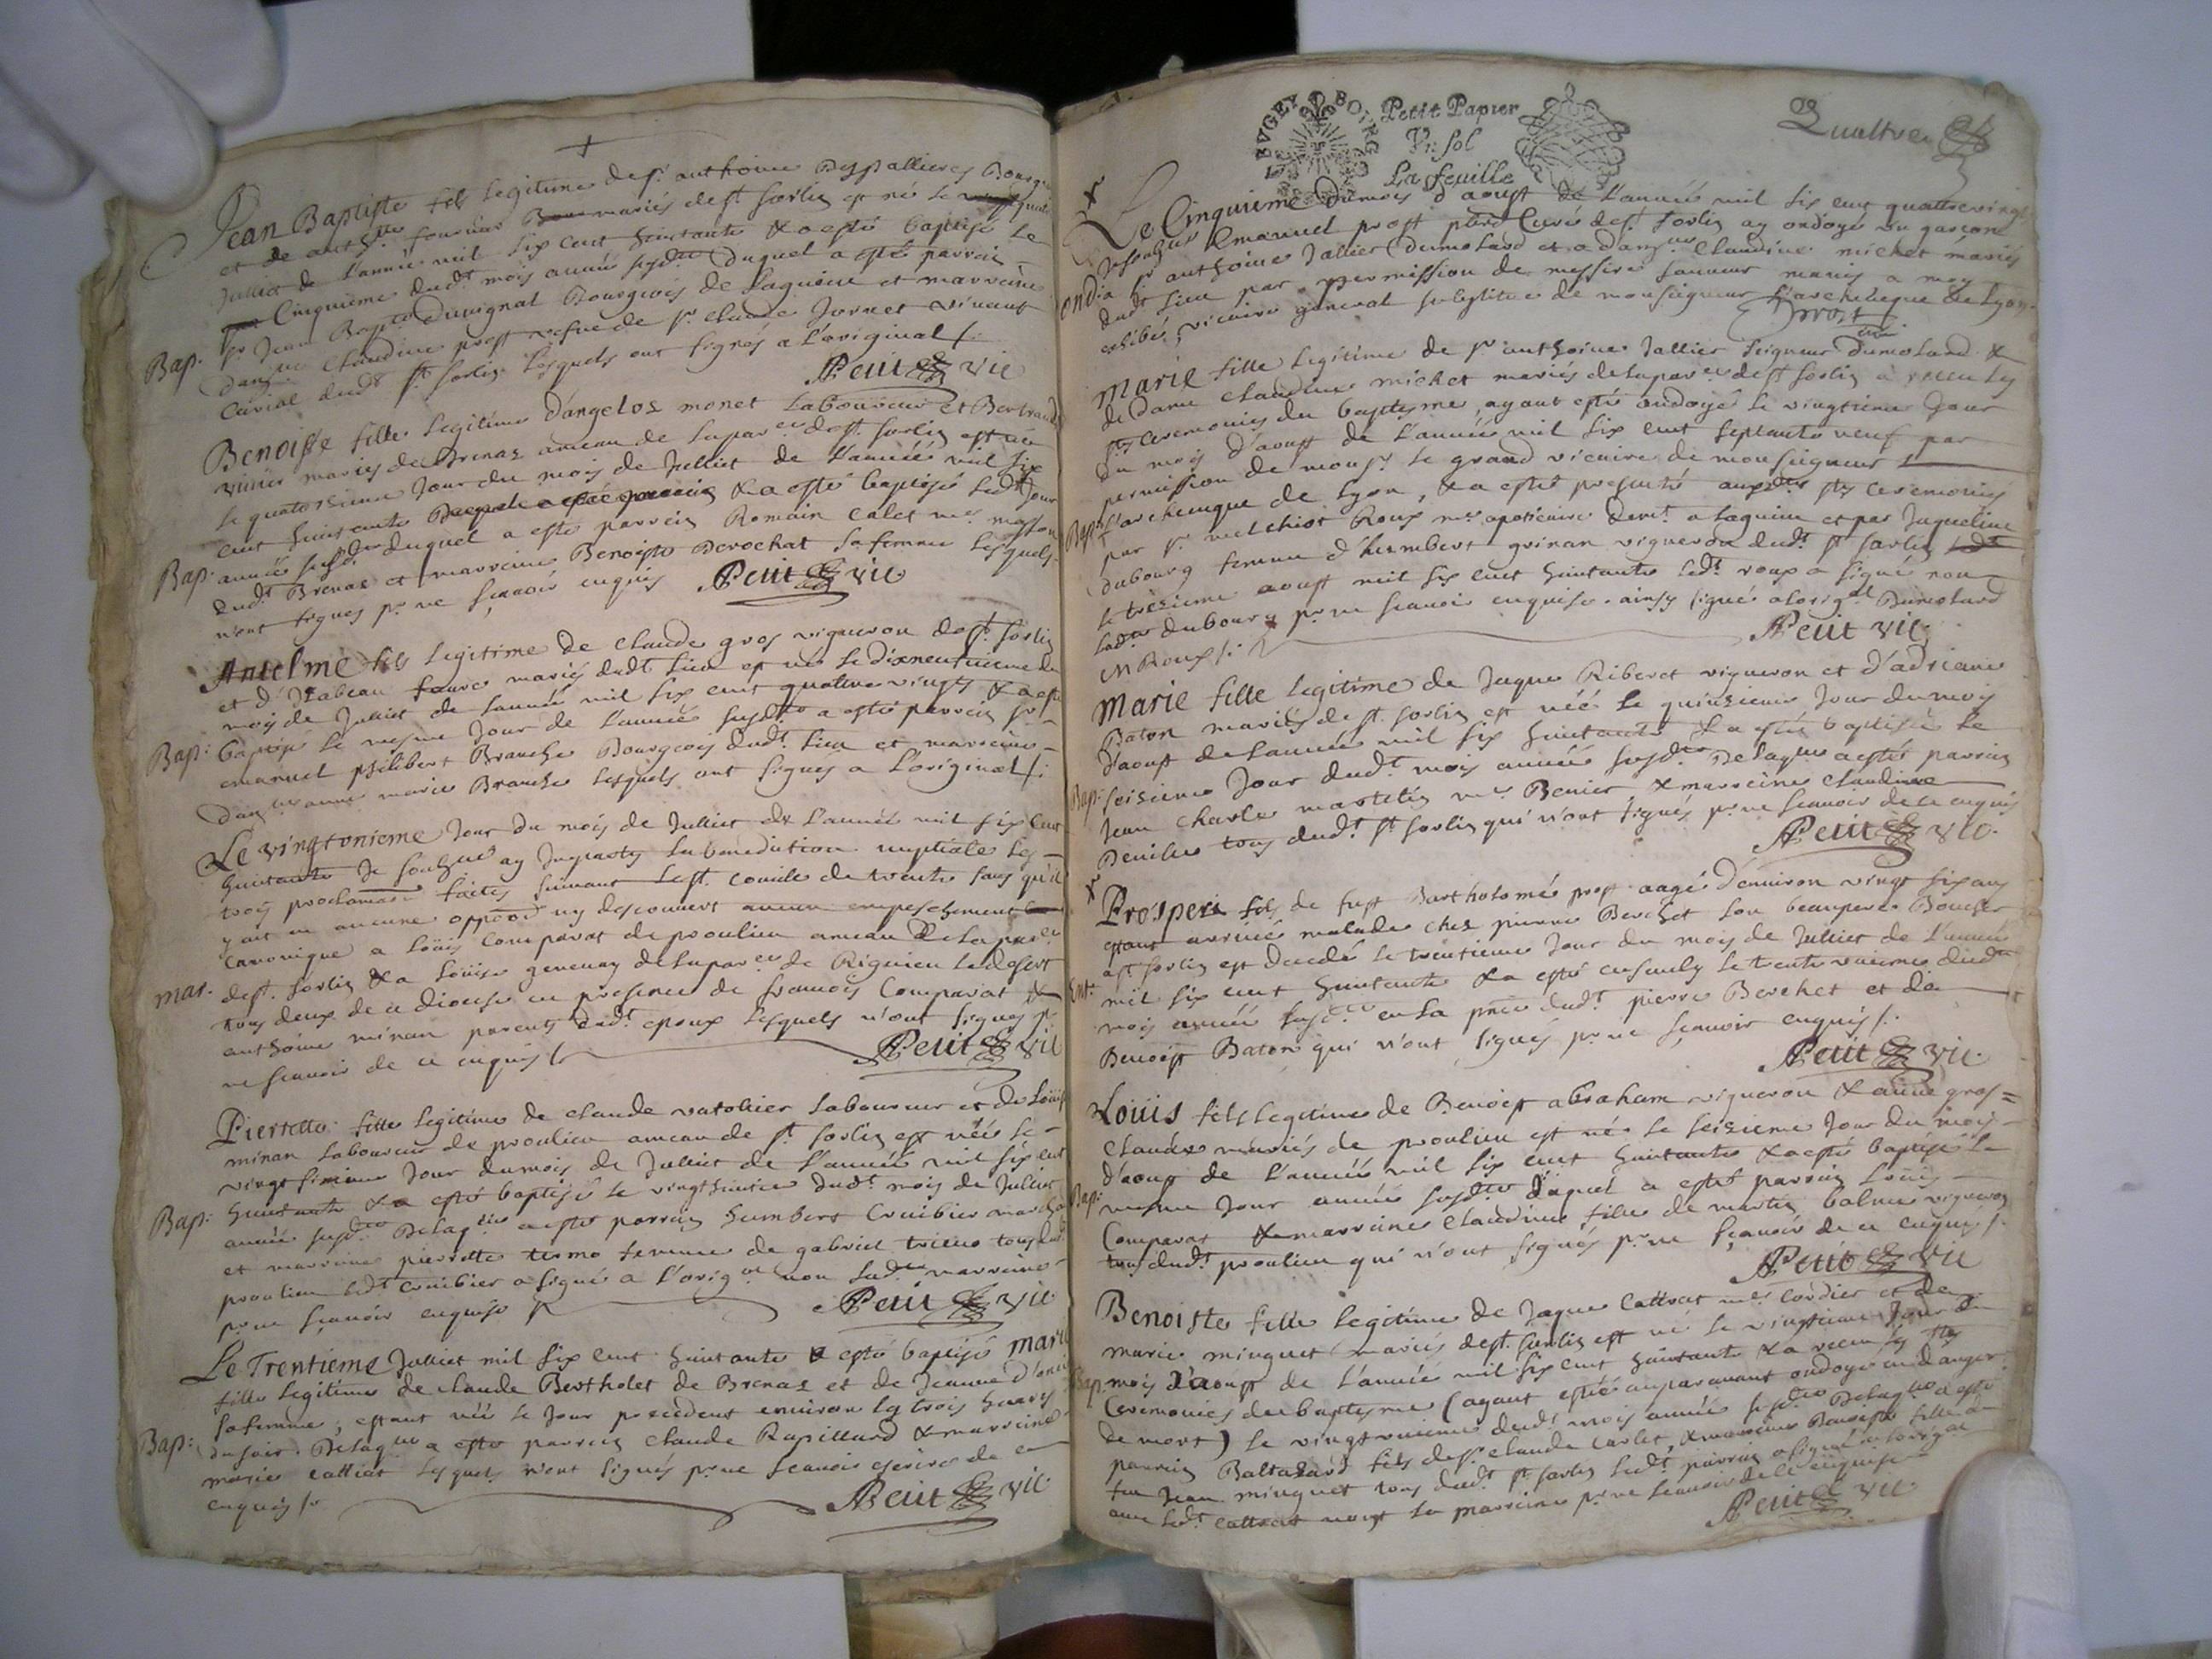 Jean Baptiste fils legitime de sr. anthoine Despallieres Bourgeois
et de fournier mariés de st sorlin est né le
Julliet de l'année mil six cent huictante & a esté baptisé le
Cinquieme dudt mois année susdite duquel a esté parrain
Bap: sr Jean Bapte Duvignal Bourgeois de Lagnieu et marraine
Claudine prost vefue de sr Claude Jornet vivant
dudt st sorlin lesquels ont signés a l'original
Petit vic
Benoiste fille legitime d'angeloz monet Laboureur et Bertrande
mariés de Brenaz ameau de la par de st sorlin est née
le quatorsieme Jour du mois de Julliet de l'année mil six
cent huictante & a esté baptisé ledt Jour
Bap: année susd duquel a esté parrain Romain Calet me masson
dudt Brenaz et marraine Benoiste Derochat sa femme lesquels
n'ont signés pr ne sçavoir enquis Petit vic
Antelme fils legitime de Claude gros vigneron de st sorlin
et d'Isabeau faure mariés dudt lieu est né le dixneufieme du
mois de Julliet de l'année mil six cent quatre vingts & a esté
Bap: baptisé le mesme Jour de l'année susdte a esté parrain sr
emanuel philibert Branche Bourgeois dudt lieu et marraine
anne marie Branche lesquels ont signés a L'original
Le vingtonieme Jour du mois de Julliet de L'année mil six cent
huictante Je soubsné ay Imparty la benediction nuptiale les
trois proclama faites suivant le st. concile de trente sans qu'il
y ait eu aucune ny descouvert aucun empeschement
canonique a Loüis Comparat de proulieu ameau de la par
mar. de st. sorlin & a Loüise genevay de la par de Rignieu le desert
tous deux de ce diocese en presence de francois Comparat &
anthoine minan parents dudt epoux lesquels n'ont signes pr
ne scavoir de ce enquis Petit vic
Pierrette fille legitime de Claude vatohier laboureur et de Loüise
minan laboureur de proulieu ameau de st sorlin est née le
vingt sixieme Jour du mois de Julliet de l'année mil six cent
Bap: huictante & a esté baptisé le vingthuictie dudt mois de Julliet
année susdte Delaqlle a esté parrain humbert Cruibier
et marraine pierrette termo femme de gabriel trieur tous dudt
proulieu ledt Cruibier a signé a L'orig non ladte marraine
pr ne sçavoir enquise Petit vic
Le Trentieme Julliet mil six cent huictante & esté baptisé marie
fille legitime de Claude Bertholet de Brenaz et de Jeanne
sa femme, estant née le Jour precedent environ les trois heures
Bap: du soir. Delaqlle a esté parrain Claude Rapillard & marraine
marie Cattiat lesquels n'ont signés pr ne scavoir escrire de ce
enquis
Petit vic
BVGEY
Petit Papier
VI: sol
La feuille
Quattre
Le Cinquieme du mois d'aoust de L'année mil six cent quattrevingt
Je soubsné Emanuel prost Curé de st. sorlin ay ondoyé un garcon
ond: a sr anthoine Jallier Dumolard et a Claudine michet mariés
dudt lieu par permission de messire
vicaire general substitué de monseigneur L'archeveque de Lyon
Prost
curé
Marie fille legitime de sr anthoine Jallier seigneur Dumolard &
de dame Claudine michet mariés de la par de st sorlin a receu les
stes ceremonies du baptesme, ayant esté ondoyé le vingtieme Jour
du mois d'aoust de l'année mil six cent septante neuf par
permission de monsr le grand vicaire de monseigneur
Bap: l'archeveque de Lyon, & a esté presenté stes ceremonies
par sr melchior Roux me apoticaire demt a Lagnieu et par Jaqueline
dubourg femme d'humbert grinan vigneron dudt st sorlin
le tresieme aoust mil six cent huictante ledt roux a signé non
ladte dubourg pr ne scavoir enquise. ainsy signé a lorigal Dumolard
M Roux
Petit vic
Marie fille legitime de Jaque Riberet vigneron et d'adriane
Baton mariés de st. sorlin est née le quinsieme Jour du mois
d'aoust de l'année mil six huictante & a esté baptisée le
Bap: seisieme Jour dudt mois année susdte Delaqlle a esté parrain
Jean Charle martelin me & marraine Claudine
tous dudt st sorlin qui n'ont signés pr ne scavoir de ce enquis
Petit vic
Prosper fils de fust Bartholomé prost aagé d'environ vingt six ans
estant arrivé malade chez pierre Berchet son beaupere
a st sorlin est decedé le trentieme Jour du mois de Julliet de L'année
Ent: mil six cent huictante & a esté ensevely le trente unieme dudt
mois année susdte en la pnce dudt pierre Berchet et de
Benoist Baton qui n'ont signés pr ne sçavoir enquis
Petit vic
Loüis fils legitime de Benoist abraham vigneron & anne gros=
Claude mariés de proulieu est né le seisieme Jour du mois
d'aoust de l'année mil six cent huictante & a esté baptisé le
Bap: mesme Jour année susdte duquel a esté parrain Loüis
Comparat & marraine Claudine fille de martin balme vigneron
tous dudt proulieu qui n'ont signés pr ne sçavoir de ce enquis
Petit vic
Benoiste fille legitime de Jaque Cattrat me Cordier et de
marie minguet mariés de st. sorlin est né le vingtieme Jour du
Bap: mois d'aoust de l'année mil six cent huictante & a receu les stes
ceremonies du baptesme (ayant esté auparavant ondoyé en danger
de mort) le vingtunieme dudt mois année susdte Delaqlle a esté
parrain Baltazard fils de sr Claude Carlet, & marraine Benoiste fille de
feu Jean minguet tous dudt st sorlin ledt parrain a signé a lorigal
avec ledt Cattrat non la marraine pr ne scavoir de ce enquise
Petit vic